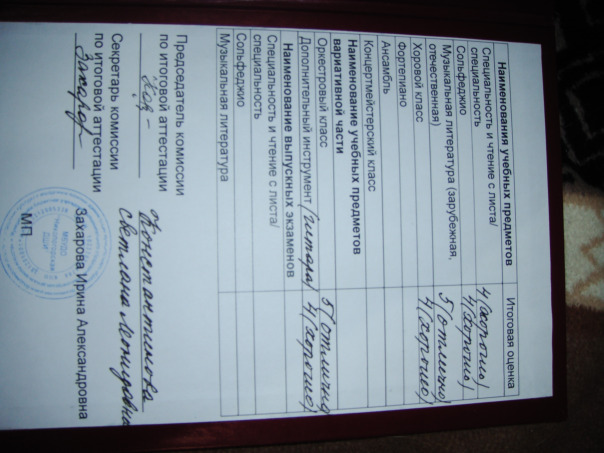 Наименования учебных предметов Итоговая оценка
Специальность и чтение с листа/ 4 (хорошо)
специальность
Сольфеджио 4 (хорошо)
Музыкальная литература (зарубежная, 5 (отлично)
отечественная)
Хоровой класс 4 (хорошо)
Фортепиано
Ансамбль
Концертмейстерский класс
Наименование учебных предметов
вариативной части
Оркестровый класс 5 (отлично)
Дополнительный инструмент /гитара/ 4 (хорошо)
Наименование выпускных экзаменов
Специальность и чтение с листа/
специальность
Сольфеджио
Музыкальная литература
Председатель комиссии
по итоговой аттестации Константинова
Светлана Леонидовна
Секретарь комиссии
по итоговой аттестации
Захарова Ирина Александровна
МП